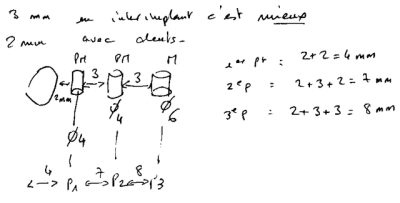 3 mm en interimplant c'est mieux
2 mm avec dents.
PM PM M
2mm 3 3
Ø4 Ø4 Ø6
4 P1 7 P2 8 P3
1er pt = 2+2 = 4 mm
2e p = 2+3+2 = 7 mm
3e p = 2+3+3 = 8 mm